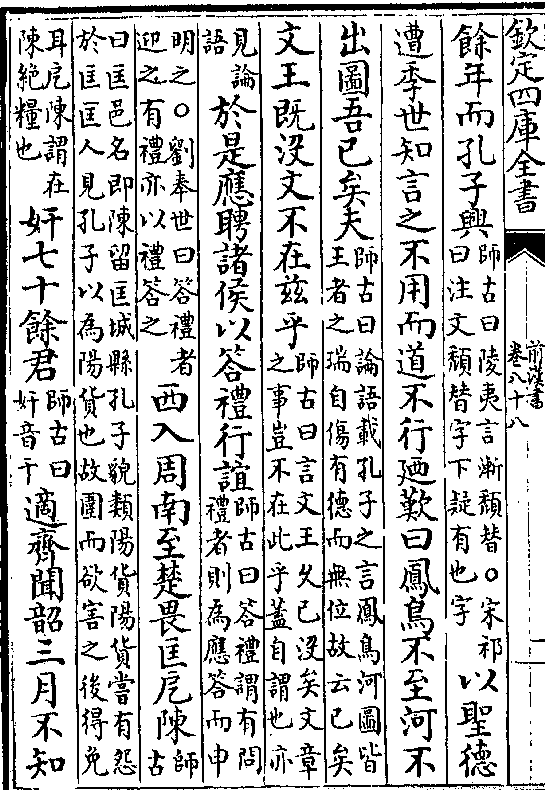 欽定四庫全書
前漢書
卷八十八
餘年而孔子興師古曰陵夷言漸頽替○宋祁曰注文頽替字下疑有也字以聖德
遭季世知言之不用而道不行廼歎曰鳳鳥不至河不
出圖吾已矣夫師古曰論語載孔子之言鳳鳥河圖皆王者之瑞自傷有德而無位故云已矣
文王既沒文不在兹乎師古曰言文王久已沒矣文章之事豈不在此乎蓋自謂也亦
見論語於是應聘諸侯以答禮行誼師古曰答禮謂有問禮者則為應答而申
明之○劉奉世曰答禮者迎之有禮亦以禮答之西入周南至楚畏匡戹陳師古
曰匡邑名即陳留匡城縣孔子貌類陽貨陽貨嘗有怨於匡匡人見孔子以為陽貨也故圍而欲害之後得免
耳戹陳謂在陳絶糧也奸七十餘君師古曰奸音干適齊聞韶三月不知